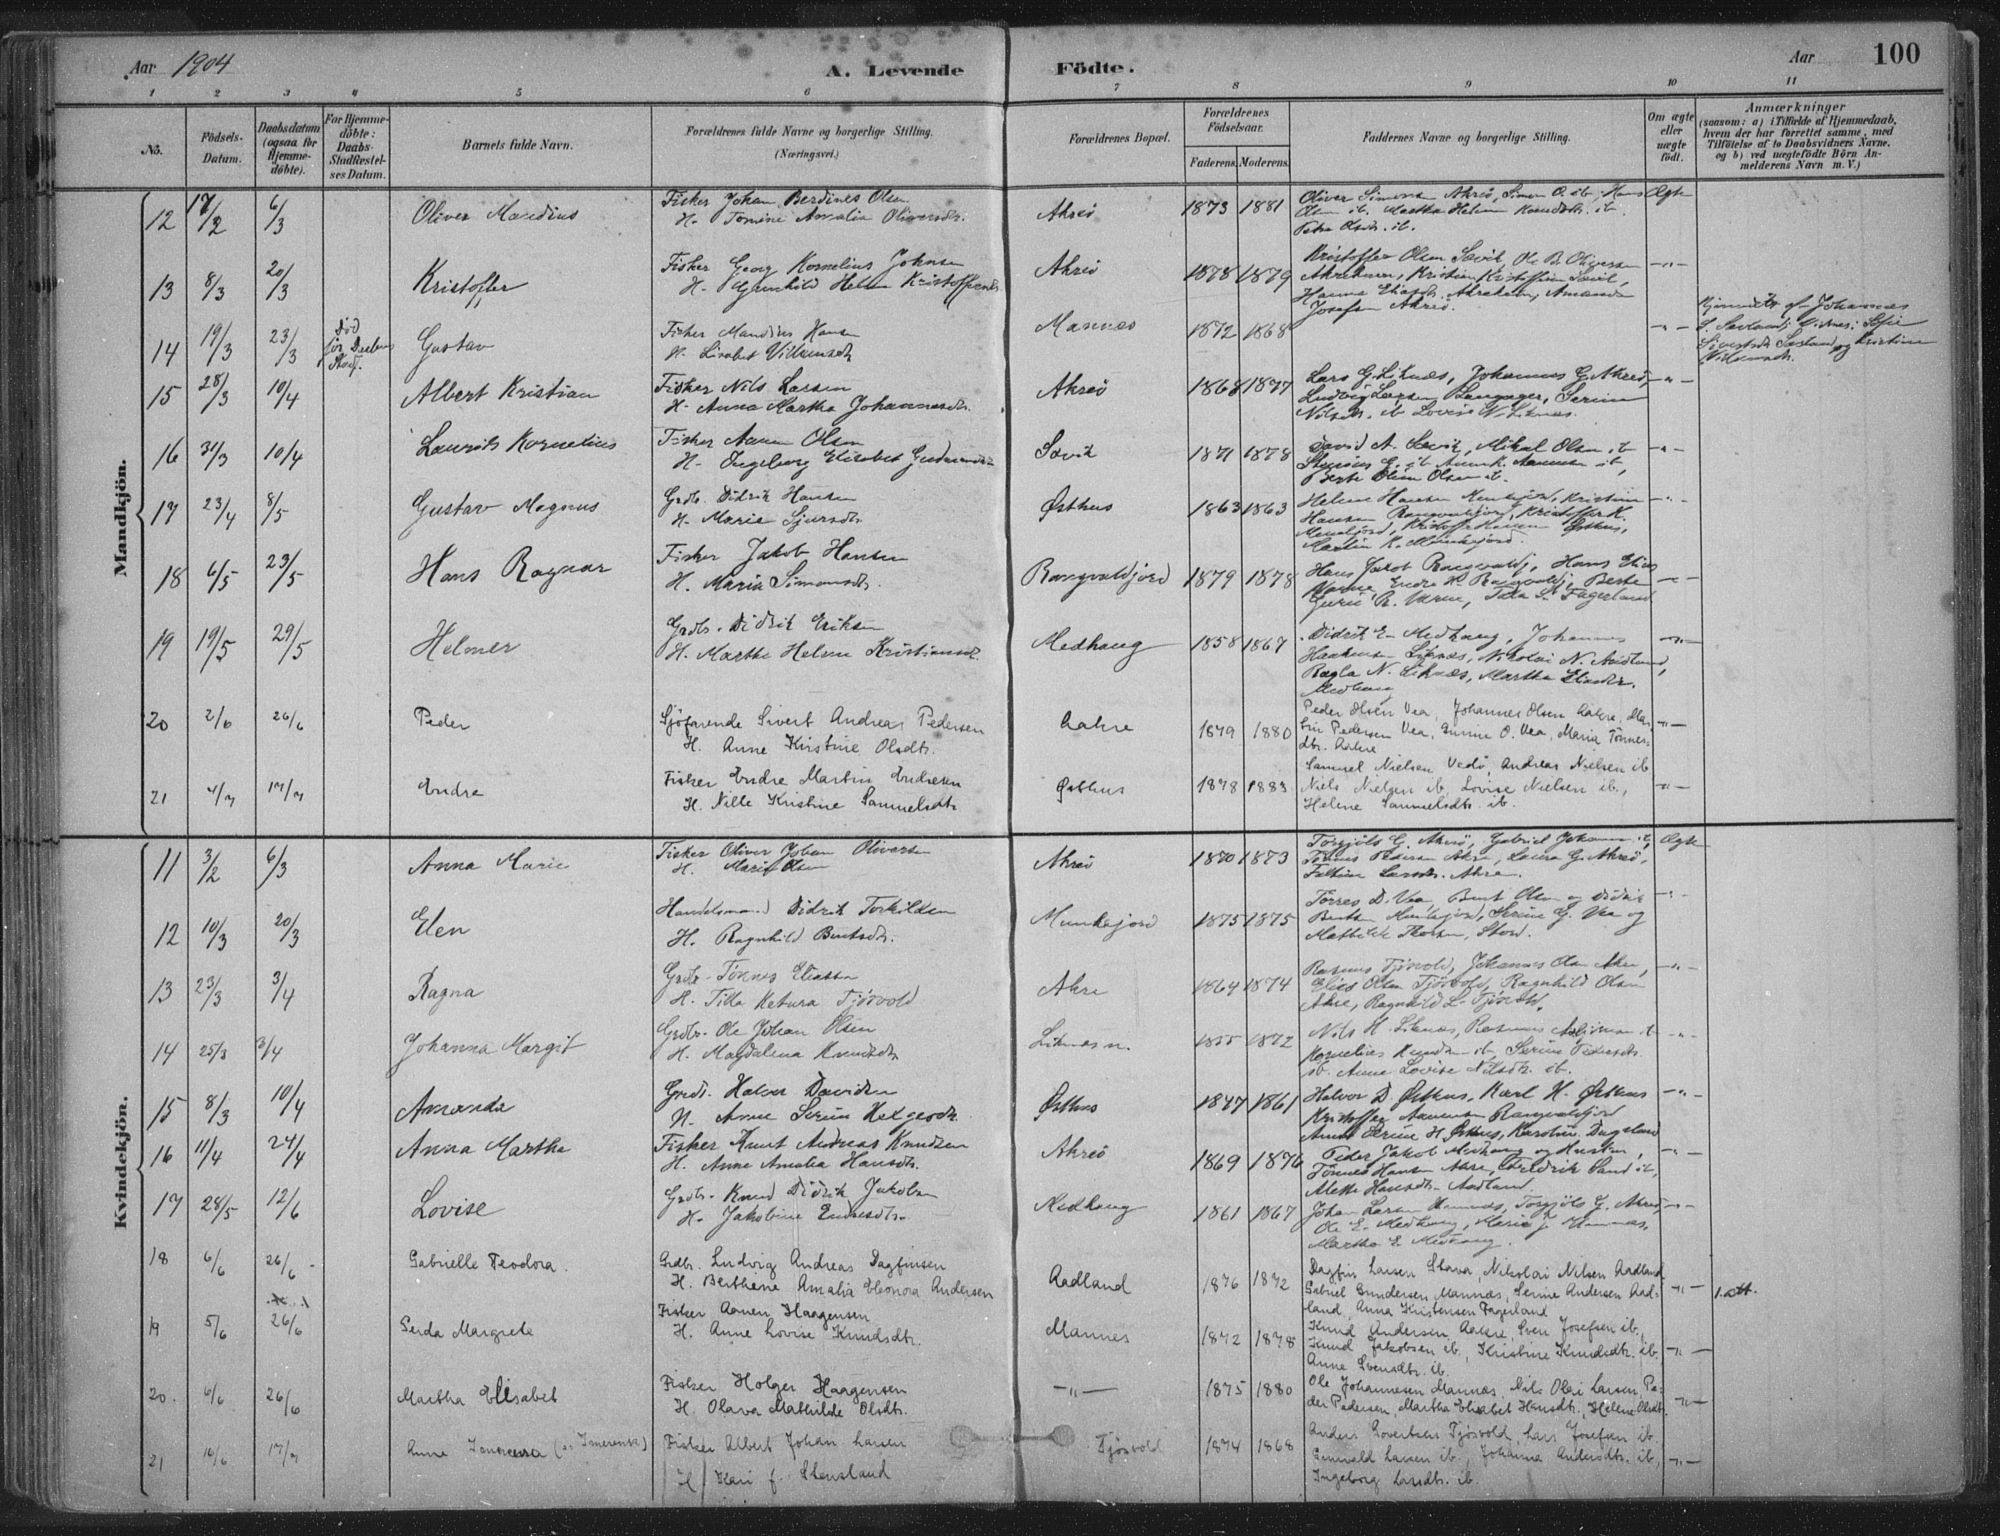 Aar 1904
A. Levende Fødte.
Aar
100
1 2 3 4 5 6 7 8 9 10 11
No.
Fødsels-Datum.
Daabsdatum (ogsaa for Hjemmedøbte).
For Hjemmedøbte: Daabs-Stadfæstelses Datum.
Barnets fulde Navn.
Forældrenes fulde Navne og borgerlige Stilling. (Næringsvei.)
Forældrenes Bopæl.
Forældrenes Fødselsaar.
Faderens. Moderens.
Faddernes Navne og borgerlige Stilling.
Om ægte eller uægte født.
Anmærkninger
(saasom: a) i Tilfælde af Hjemmedaab, hvem der har forrettet samme, med Tilføielse af to Daabsvidners Navne, og b) ved uægtefødte Børn Anmelderens Navn m. V.)
Mandkjøn.
12 17/2 6/3 Oliver Mandius Fisker Johan Berdines Olsen Akreø 1873 1881 Oliver Simonsen Akreø, Simon O. ib. Hans Ægte
H. Tomine Amalia Oliversdtr. Olsen ib. Martha Helene Knudsdtr. ib.
Petra Olsdtr. ib.
13 8/3 20/3 Kristoffer Fisker Georg Kornelius Johnsen Akreø 1878 1879 Kristoffer Olsen Sævik, Ole B. Oliversen -"-
H. Gunhild Helene Kristoffersdtr. Kristian Kristoffersen Sævik,
Hanna Eliasdtr. Akrehavn, Amanda
Josefsen Akreø.
14 19/3 23/3 Død før Daabens Stadf. Gustav Fisker Mandius Hansen Mannæs 1872 1868 -"- Hjemmedøbt af Johannes
H. Lisabet Vilhemsdtr.
15 28/3 10/4 Albert Kristian Fisker Nils Larsen Akreø 1868 1877 Lars G. Liknæs, Johannes G. Akreø, -"-
H. Anna Martha Johannesdtr. Ludvig Larsen Langager, Serine
Nilsdtr. ib Lovise N. Liknæs.
16 31/3 10/4 Laurits Kornelius Fisker Aanen Olsen Sævik 1871 1878 David A. Sævik, Mikal Olsen ib -"-
H. Ingeborg Elisabet Berte Olene Olsen ib.
17 23/4 8/5 Gustav Magnus Grdb. Didrik Hansen Østhus 1863 1863 -"-
H. Marie Sjursdtr. Hansen Rangvaldjord, Kristoffer K.
Munkejord, Kristoffer Hansen Østhus,
Martin K. Munkejord.
18 6/5 23/5 Hans Ragnar Fisker Jakob Hansen Rangvaldjord 1879 1878 Hans Jakob Rangvaldj., Hans Elias -"-
H. Maria Simonsdtr. Varne, Endre H. Rangvaldj., Berte
Gurie R. Varne, Tala S. Fagerland
19 19/5 29/5 Helmer Grdb. Didrik Eriksen Medhaug 1858 1867 Didrik E. Medhaug, Johannes -"-
H. Marthe Helene Kristiansd. Haakensen Liknæs, Nikolai N. Aadland,
Ragla N. Liknæs, Martha Eliasdtr.
Medhaug
20 2/6 26/6 Peder Sjøfarende Sivert Andreas Pedersen Aakre 1879 1880 Peder Olsen Vea, Johannes Olsen Aakre, Mar- -"-
H. Anne Kirstine Olsdtr. tin Pedersen Vea, Gunne O. Vea, Maria Tønnes-
dtr. Aakre
21 4/7 17/7 Endre Fisker Endre Martin Endresen Østhus 1878 1883 Samuel Nielsen Vedø, Andreas Nielsen ib -"-
H. Nille Kristine Samuelsdtr. Niels Nielsen ib, Lovise Nielsen ib.,
Helene Samuelsdtr. ib.
Kvindekjøn.
11 3/2 6/3 Anna Marie Fisker Oliver Johan Olivers. Akreø 1870 1873 Torgjøls G. Akreø, Gabriel Johannes. ib, Ægte
H. Marie Olsen Tønnes Pedersen Akre, Laura G. Akreø,
Larsdtr. Akre.
12 10/3 20/3 Elen Handelsmand Didrik Torkildsen Munkejord 1875 1875 Torres D. Vea, Bent Olsen og Didrik -"-
H. Ragnhild Bentsdtr. Bentsen Munkejord, Serine G. Vea og
Mathilde Thorsen, Stord.
13 23/3 3/4 Ragna Grdb. Tønnes Eliassen Akre 1864 1874 Rasmus Tjøsvold, Johannes Olsen Akre, -"-
H. Tilla Ketura Tjøsvold Elias Olsen Tjøsvold, Ragnhild Olsen
Akre, Ragnhild L. Tjøsvold.
14 25/3 3/4 Johanna Margit Grdb. Ole Johan Olsen Liknæs n. 1855 1872 Nils H. Liknæs, Rasmus ib -"-
H. Magdalena Knudsdtr. Kornelius Knudsen ib, Serine Pedersdtr.
ib. Anne Lovise Nilsdtr. ib.
15 8/3 10/4 Amanda Grdb. Halvor Davidsen Østhus 1847 1861 Halvor D. Østhus, Karl H. Østhus -"-
H. Anne Serine Helgesdtr. Kristoffer Aanensen Rangvaldjord
Anna Serine H. Østhus, Karoline Dagsland
16 11/4 24/4 Anna Marthe Fisker Knut Andreas Knudsen Akreø 1869 1876 Peder Jakob Medhaug og Hustru, -"-
H. Anne Amalia Hansdtr. Tønnes Hansen Akre, Fredrik Sand ib,
Alette Hansdtr. Aadland.
17 28/5 12/6 Lovise Grdb. Knud Didrik Jakobsen Medhaug 1861 1867 Johan Larsen Munnæs, Torgjøls G. Akreø, -"-
H. Jakobine Endresdtr. Ole E. Medhaug, Marie J. Munnæs,
Martha E. Medhaug.
18 6/6 26/6 Gabrielle Teodora. Grdbr. Ludvig Andreas Dagfinsen Aadland 1876 1872 Dagfin Larsen Stava, Nikolai Nilsen Aadland -"- 1. att.
H. Berthene Amalia Eleonora Andersen Gabriel Gundersen Mannæs, Serine Andersen Aad-
land, Anna Kristensen Fagerland
19 5/6 26/6 Gerda Margrete Fisker Aanen Haagensen Mannes 1872 1878 Knud Andersen Aakre, Sven Josefsen ib., -"-
H. Anne Lovise Knudsdtr. Knud Jakobsen ib., Kristine Knudsdtr. ib
Anne Svensdtr. ib.
20. 6/6 26/6 Martha Elisabet Fisker Holger Haagensen -"- 1875 1880 Ole Johannesen Mannæs, Nils Olai Larsen, Pe- -"-
H. Olava Mathilde Olsdtr. der Pedersen, Martha Elisabet Hansdtr., Helene Olsdtr.
21 16/6 17/7 Anne Fisker Albert Johan Larsen Tjøsvold 1874 1868 Anders Govertsen Tjøsvold, Lars Josefsen ib. -"-
H. Kari f. Stensland Gunvald Larsen ib., Johanna Andersdtr. ib.,
Ingeborg Larsdtr. ib.